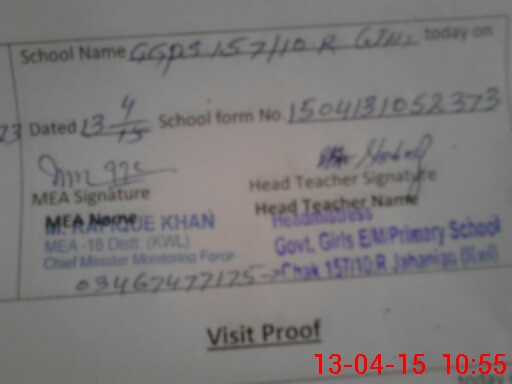 School Name GGPS 157/10 R today on
Dated 13-4-15 School form No. 1504131052373
MEA Signature
Head Teacher Signature
MEA Name
Head Teacher Name
M. RAFIQUE KHAN
Headmistress
MEA -18 Distt. (KWL)
Govt. Girls E/M/Primary School
Chief Minister Monitoring Force
Chak 157/10 R Jahanian (Kwl)
03467477175
Visit Proof
13-04-15 10:55